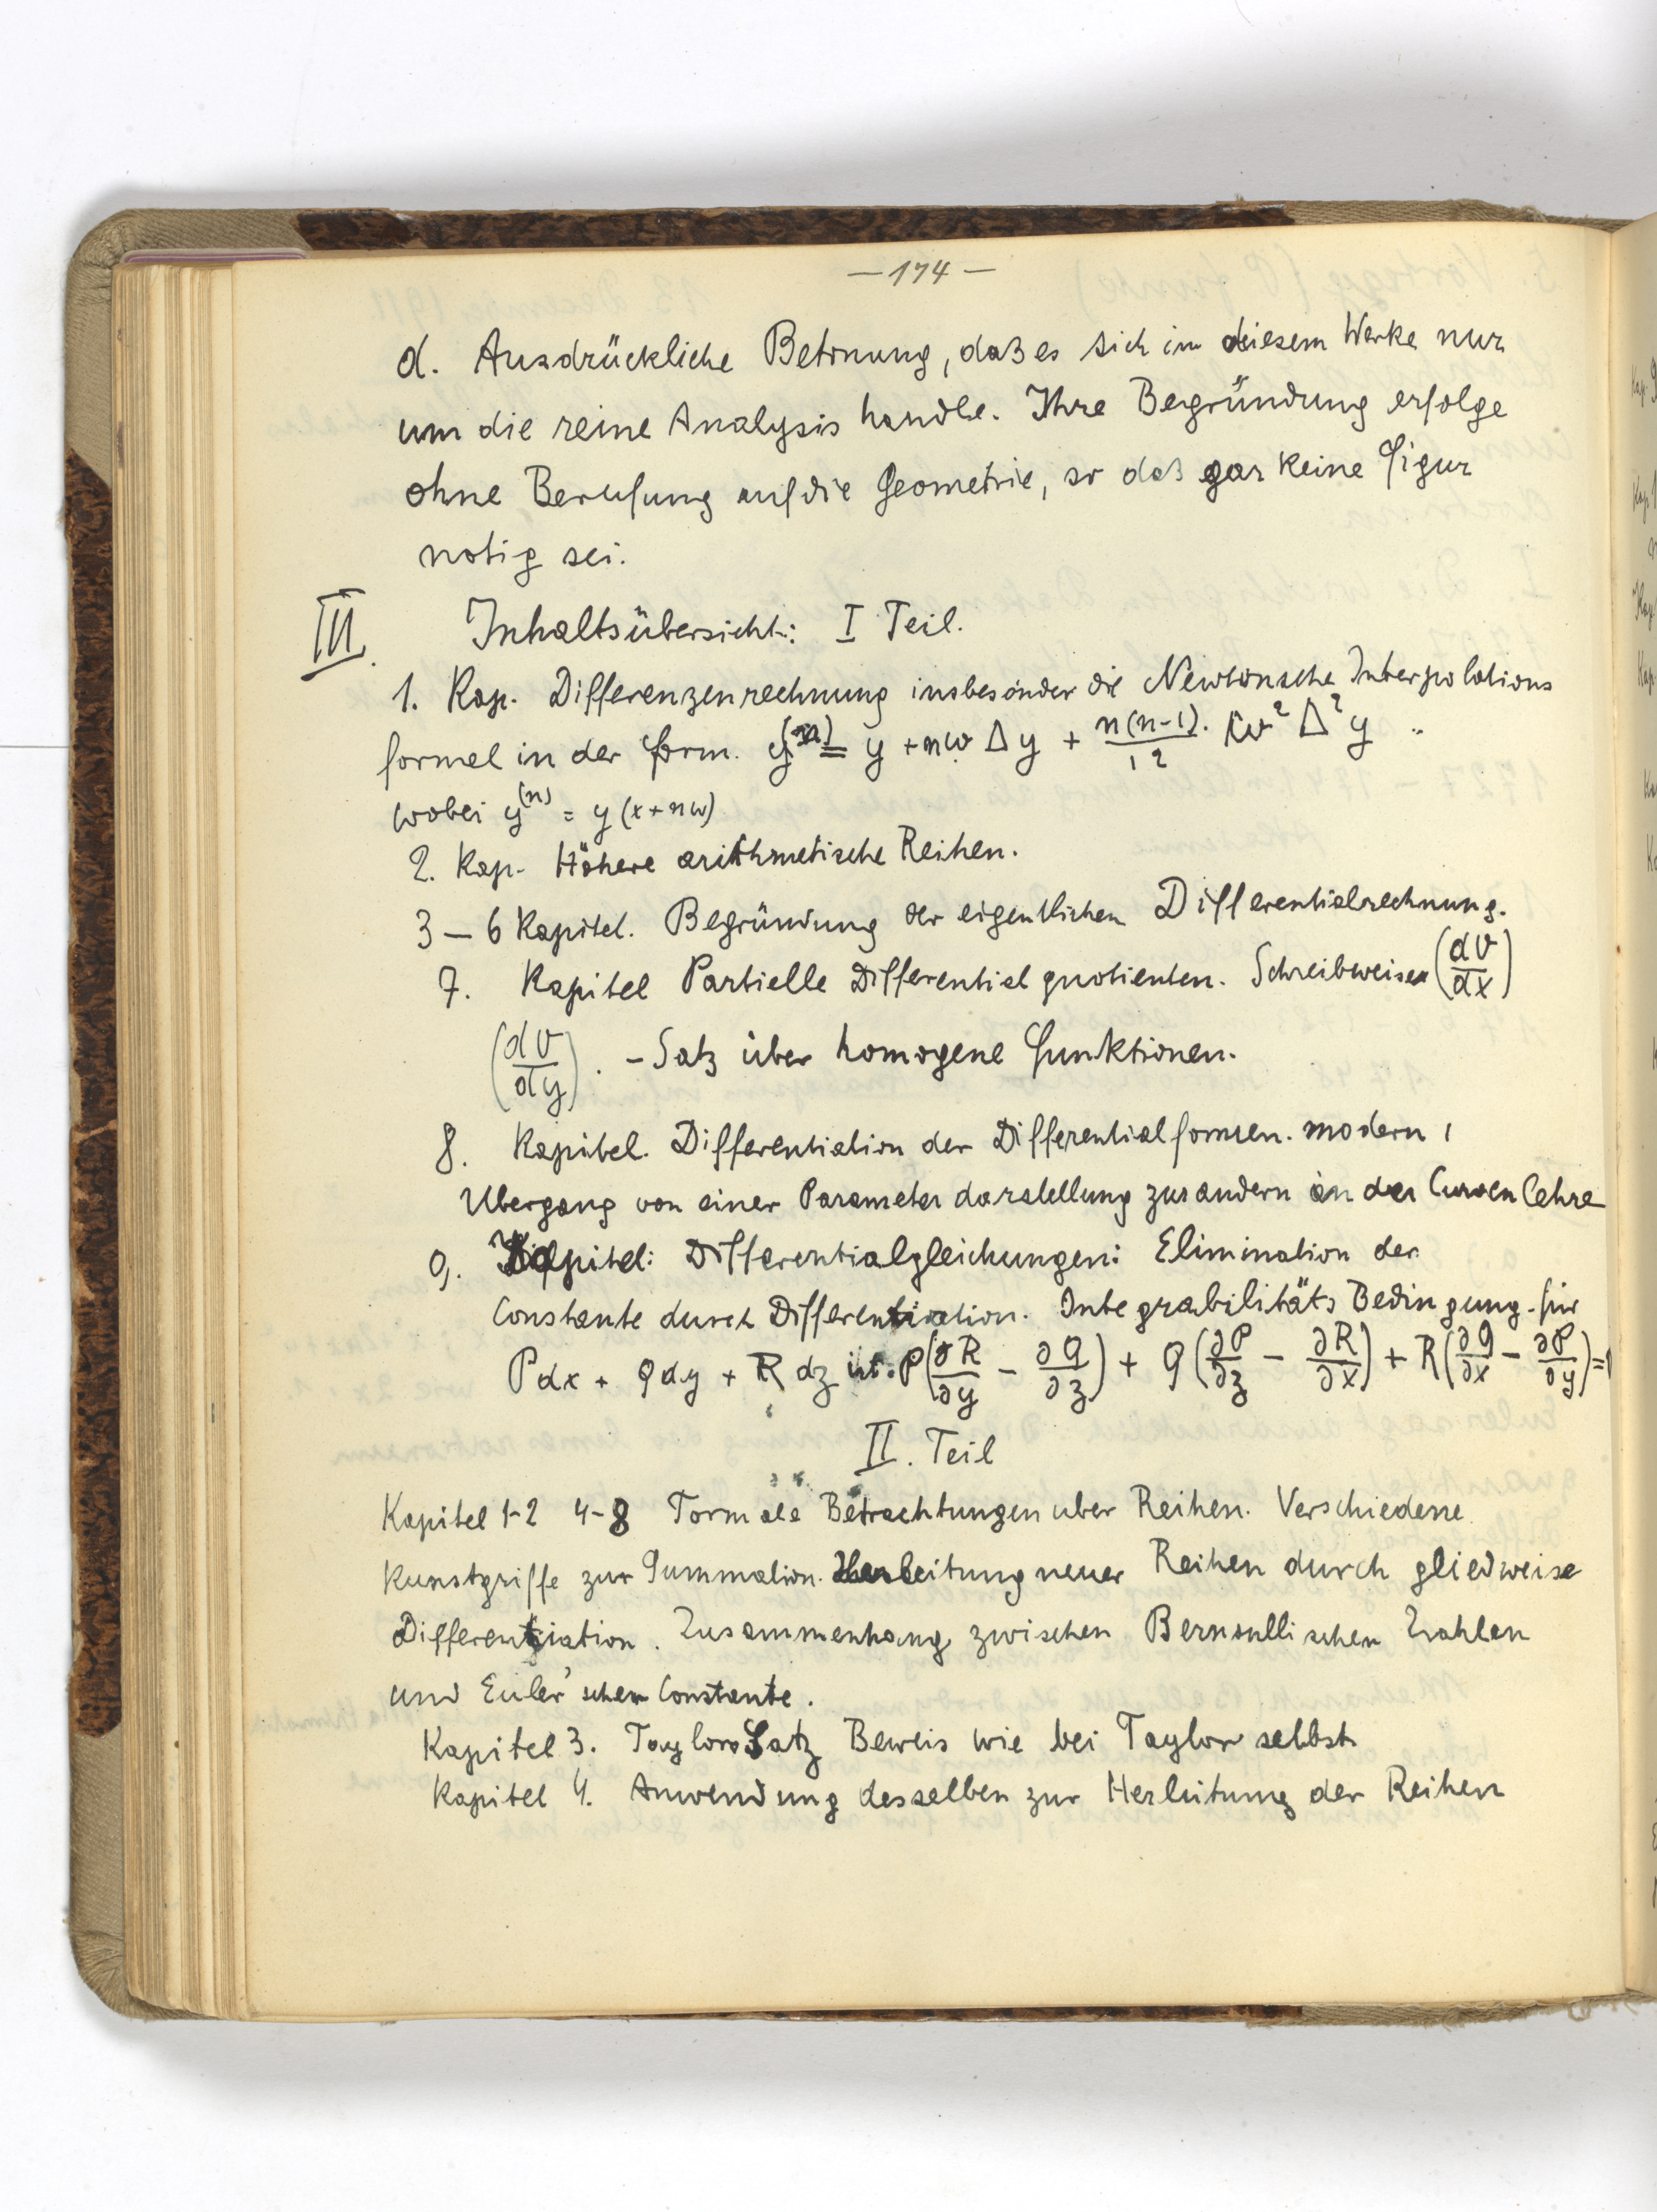 — 174 —
d. Ausdrückliche Betonung, daß es sich in diesem Werke nur
um die reine Analysis handle. Ihre Begründung erfolge
ohne Berufung auf die Geometrie, so daß gar keine Figur
notig sei.
III. Inhaltsübersicht: I Teil.
1. Kap. Differenzenrechnung insbesonder die Newtonsche Interpolations
formel in der Form. y^(n) = y + nω Δy + n(n-1)/12 · ω² Δ² y ..
wobei y^(n) = y(x+nω)
2. Kap. Höhere arithmetische Reihen.
3 — 6 Kapitel. Begründung der eigentlichen Differentialrechnung.
7. Kapitel Partielle Differentialquotienten. Schreibweisen (dV/dx)
(dV/dy). - Satz über homogene Funktionen.
8. Kapitel. Differentiation der Differentialformen. modern,
Übergang von einer Parameterdarstellung zur andern in der Curvenlehre
9. Kapitel: Differentialgleichungen: Elimination der
Constante durch Differentiation. Integrabilitäts Bedingung für
Pdx + Qdy + R dz ist. P(∂R/∂y − ∂Q/∂z) + Q(∂P/∂z − ∂R/∂x) + R(∂Q/∂x − ∂P/∂y) =
II. Teil
Kapitel 1-2 4-8 Formale Betrachtungen uber Reihen. Verschiedene
Kunstgriffe zur Summation. Herleitung neuer Reihen durch gliedweise
Differentiation. Zusammenhang zwischen Bernoullischen Zahlen
und Euler'schen Constante.
Kapitel 3. Taylors Satz Beweis wie bei Taylor selbst
Kapitel 4. Anwendung desselben zur Herleitung der Reihen